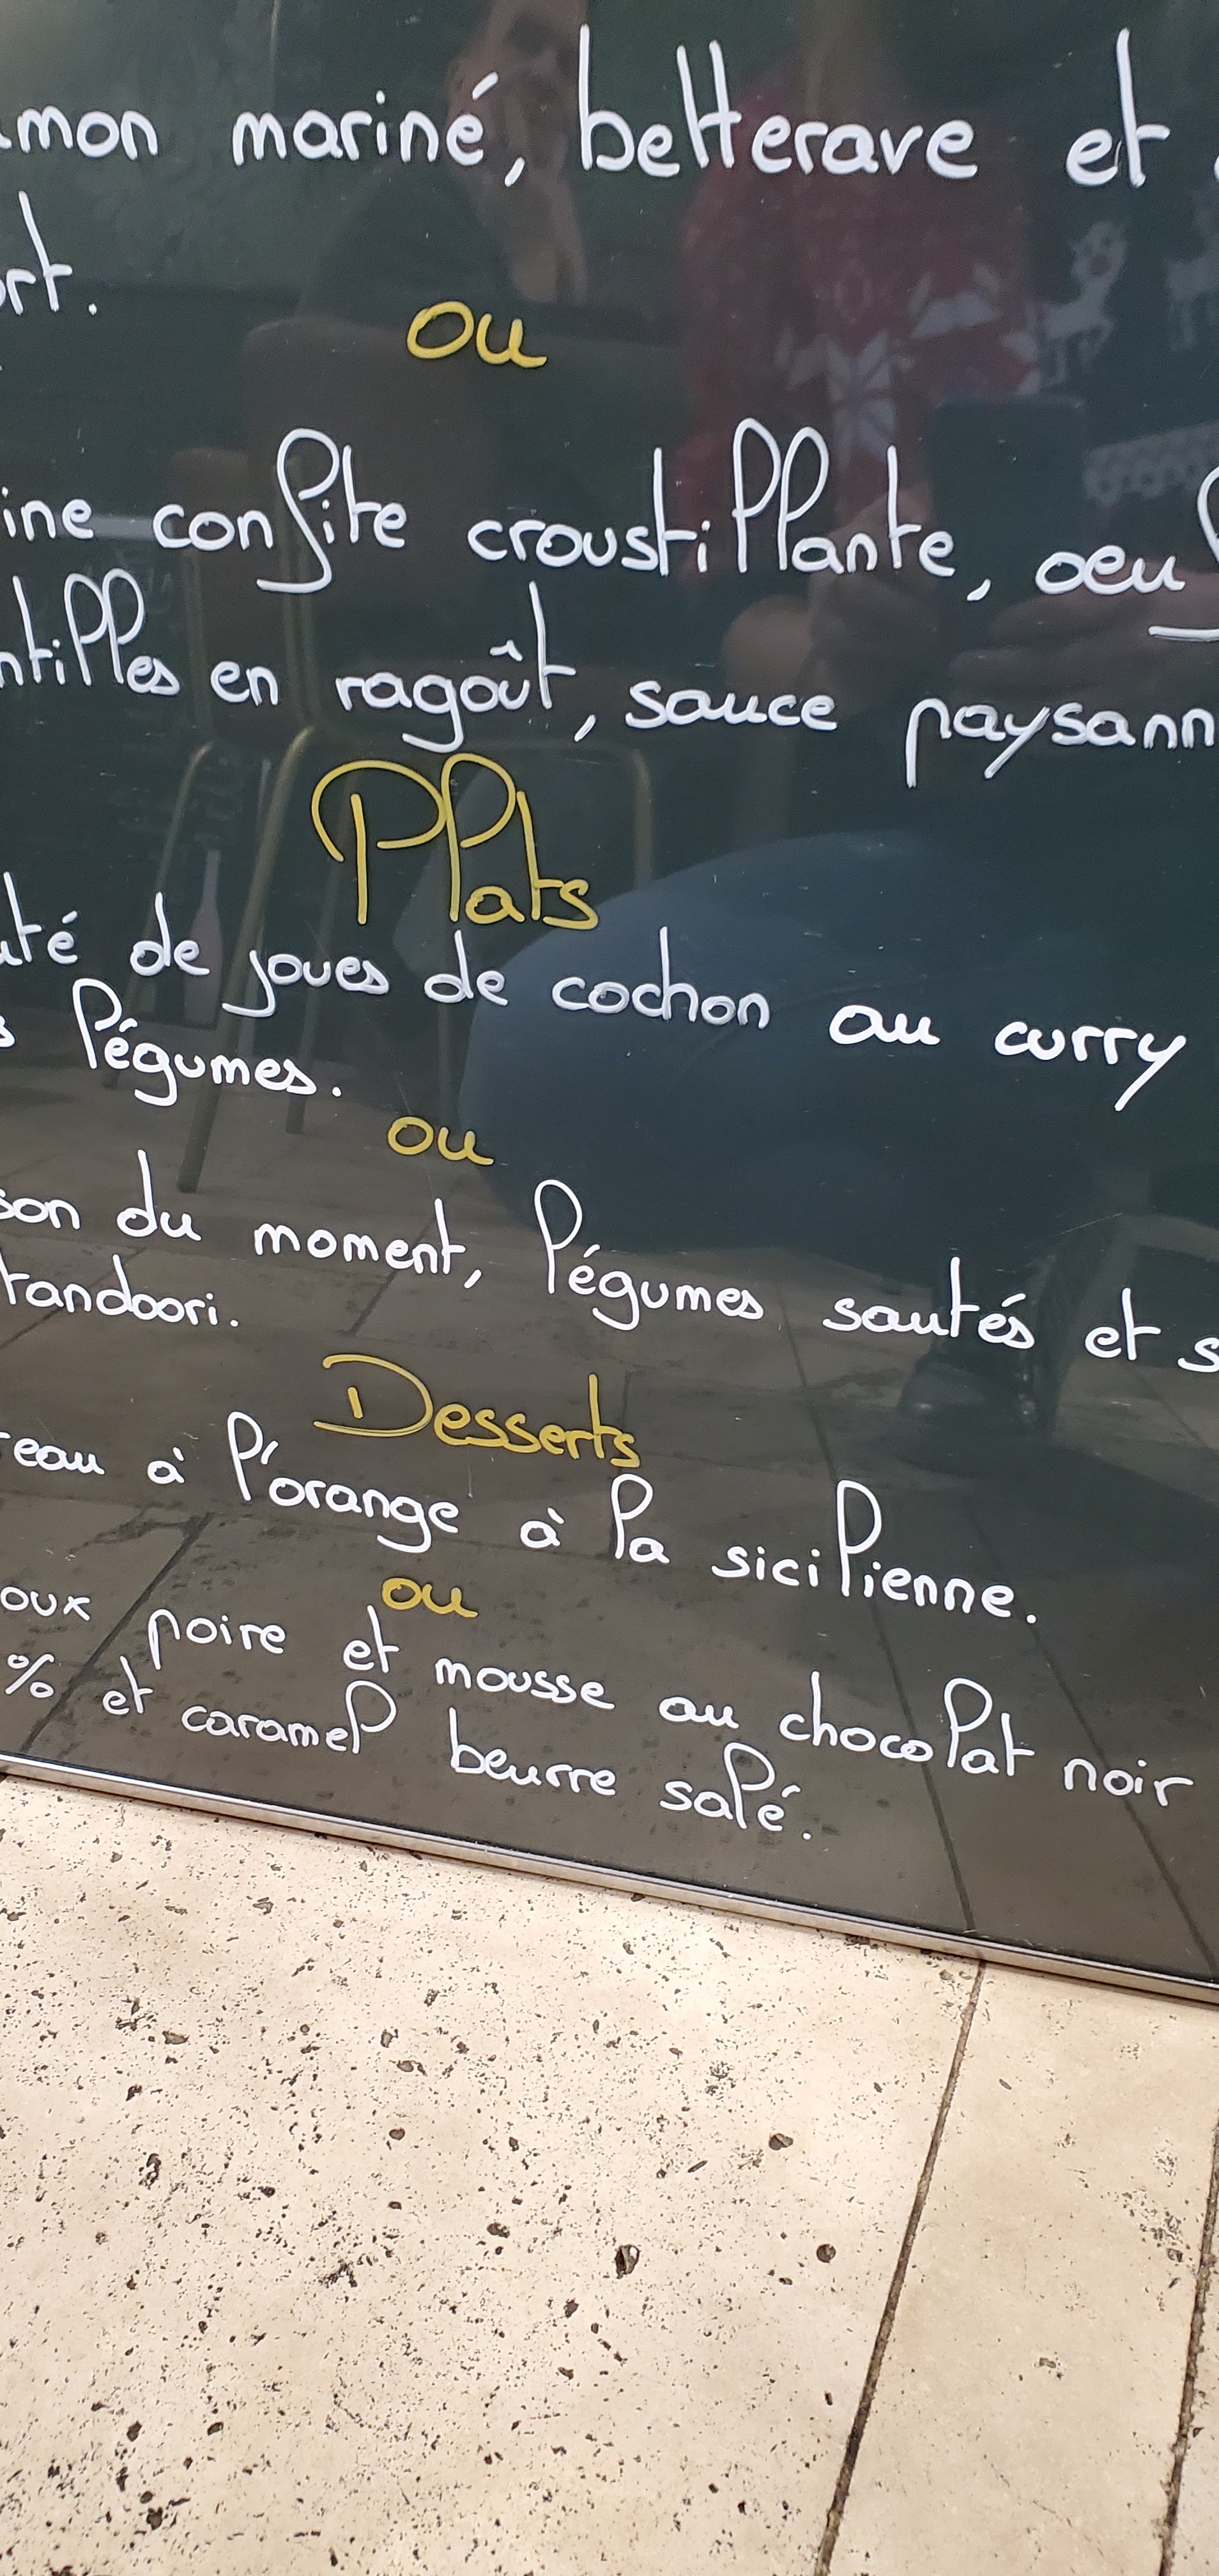 mon mariné, betterave et
ort.
ou
ine confite croustillante, oeuf
ntilles en ragoût, sauce paysann
Plats
uté de joues de cochon au curry
s légumes.
ou
son du moment, légumes sautés et s
tandoori.
Desserts
eau à l'orange à la sicilienne.
ou
oux poire et mousse au chocolat noir
% et caramel beurre salé.